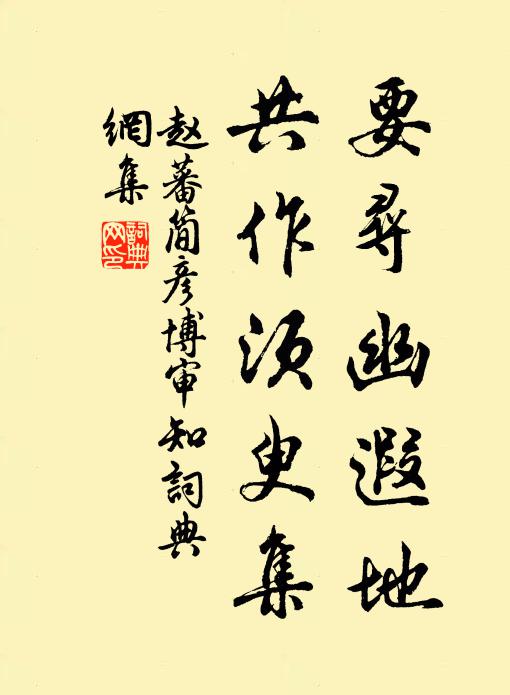 要尋幽遐地
共作須臾集
赵蕃简彦博审知詞典
網集
詞典網印